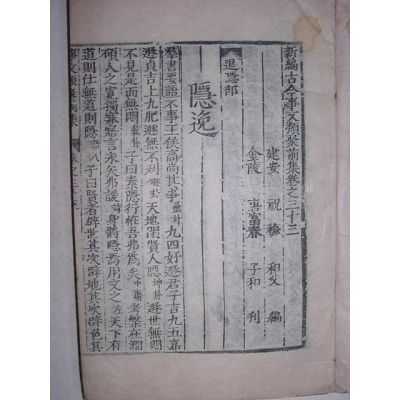 新編古今事文類聚前集卷之三十三
建安 祝穆 和父 編
金陵 唐富春 子和 刊
退隱部
隱逸
羣書要語不事王侯高尚其事蠱卦九四好遯君子吉九五嘉
遯貞吉上九肥遯無不利卦天地閉賢人隱坤卦遯世無悶
不見是而無悶素隱行怪吾弗為矣中庸考槃在澗
碩人之寬獨寐寤言永矢弗諼身將隱焉用文之左天下有
道則仕無道則隱子曰賢者辟世其次辟地其次辟色其